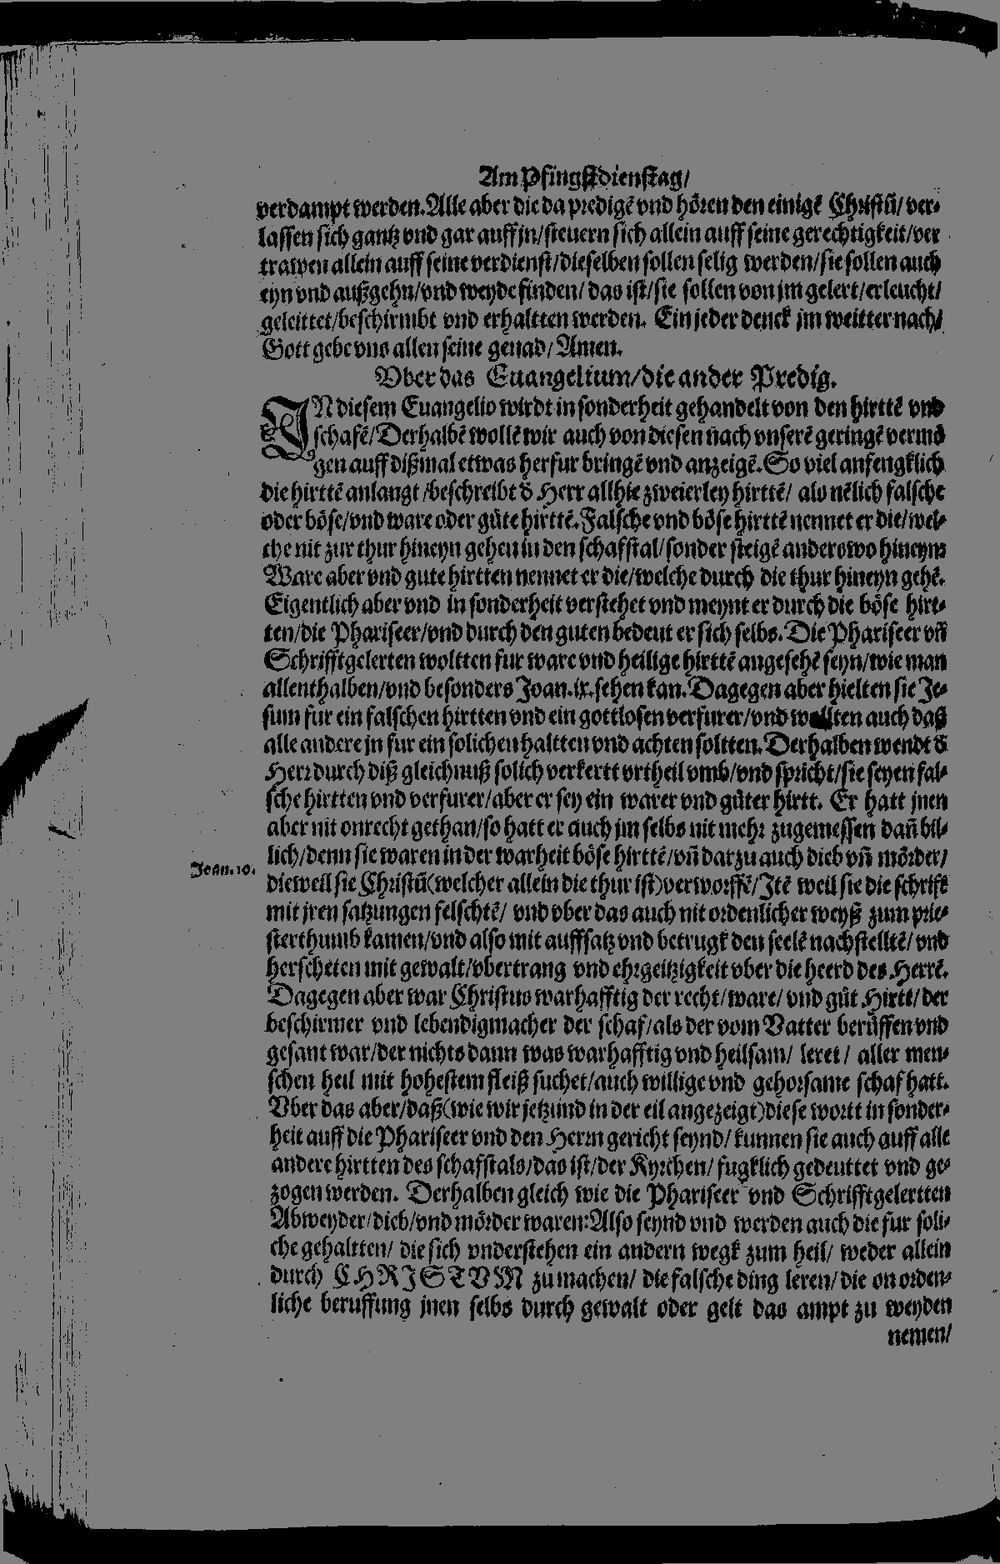 Am Pfingstdienstag/
verdampt werden. Alle aber die da predigē vnd hören den einigē Christū/ ver-
lassen sich gantz vnd gar auff jn/ steuern sich allein auff seine gerechtigkeit/ ver
trawen allein auff seine verdienst/ dieselben sollen selig werden/ sie sollen auch
eyn vnd außgehn/ vnd weyde finden/ das ist/ sie sollen von jm gelert/ erleucht/
geleittet/ beschirmbt vnd erhaltten werden. Ein jeder denck jm weitter nach/
Gott gebe vns allen seine genad/ Amen.
Vber das Euangelium/ die ander Predig.
IN diesem Euangelio wirdt in sonderheit gehandelt von den hirttē vnd
schafē/ Derhalbē wollē wir auch von diesen nach vnserē geringē vermö
gen auff dißmal etwas herfur bringē vnd anzeigē. So viel anfengklich
die hirttē anlangt/ beschreibt d̄ Herr allhie zweierley hirttē/ als nēlich falsche
oder böse/ vnd ware oder gůte hirttē. Falsche vnd böse hirttē nennet er die/ wel-
che nit zur thur hineyn gehen in den schafstal/ sonder steigē anderswo hineyn:
Ware aber vnd gute hirtten nennet er die/ welche durch die thur hineyn gehē.
Eigentlich aber vnd in sonderheit verstehet vnd meynt er durch die böse hirt-
ten/ die Phariseer/ vnd durch den guten bedeut er sich selbs. Die Phariseer vñ
Schrifftgelerten woltten fur ware vnd heilige hirttē angesehē seyn/ wie man
allenthalben/ vnd besonders Joan. ix. sehen kan. Dagegen aber hielten sie Je-
sum fur ein falschen hirtten vnd ein gottlosen verfurer/ vnd wollten auch daß
alle andere jn fur ein solichen haltten vnd achten soltten. Derhalben wendt d̄
Herr durch diß gleichnuß solich verkertt vrtheil vmb/ vnd spricht/ sie seyen fal-
sche hirtten vnd verfurer/ aber er sey ein warer vnd gůter hirtt. Er hatt jnen
aber nit onrecht gethan/ so hatt er auch jm selbs nit mehr zugemessen dañ bil-
lich/ denn sie waren in der warheit böse hirttē/ vñ darzu auch dieb vñ mörder/
Joan. 10.
dieweil sie Christū (welcher allein die thur ist) verworffē/ Itē weil sie die schrift
mit jren satzungen felschtē/ vnd vber das auch nit ordenlicher weyß zum prie-
sterthumb kamen/ vnd also mit auffsatz vnd betrugk den seelē nachstelltē/ vnd
herscheten mit gewalt/ vbertrang vnd ehrgeitzigkeit vber die heerd des Herrē.
Dagegen aber war Christus warhafftig der recht/ ware/ vnd gůt Hirtt/ der
beschirmer vnd lebendigmacher der schaf/ als der vom Vatter berůffen vnd
gesant war/ der nichts dann was warhafftig vnd heilsam/ leret/ aller men-
schen heil mit hohestem fleiß suchet/ auch willige vnd gehorsame schaf hatt.
Vber das aber/ daß (wie wir jetzund in der eil angezeigt) diese wortt in sonder-
heit auff die Phariseer vnd den Herrn gericht seynd/ kunnen sie auch auff alle
andere hirtten des schafstals/ das ist/ der Kyrchen/ fugklich gedeuttet vnd ge-
zogen werden. Derhalben gleich wie die Phariseer vnd Schrifftgelertten
Abweyder/ dieb/ vnd mörder waren: Also seynd vnd werden auch die fur soli-
che gehaltten/ die sich vnderstehen ein andern wegk zum heil/ weder allein
durch CHRISTVM zu machen/ die falsche ding leren/ die on orden-
liche beruffung jnen selbs durch gewalt oder gelt das ampt zu weyden
nemen/